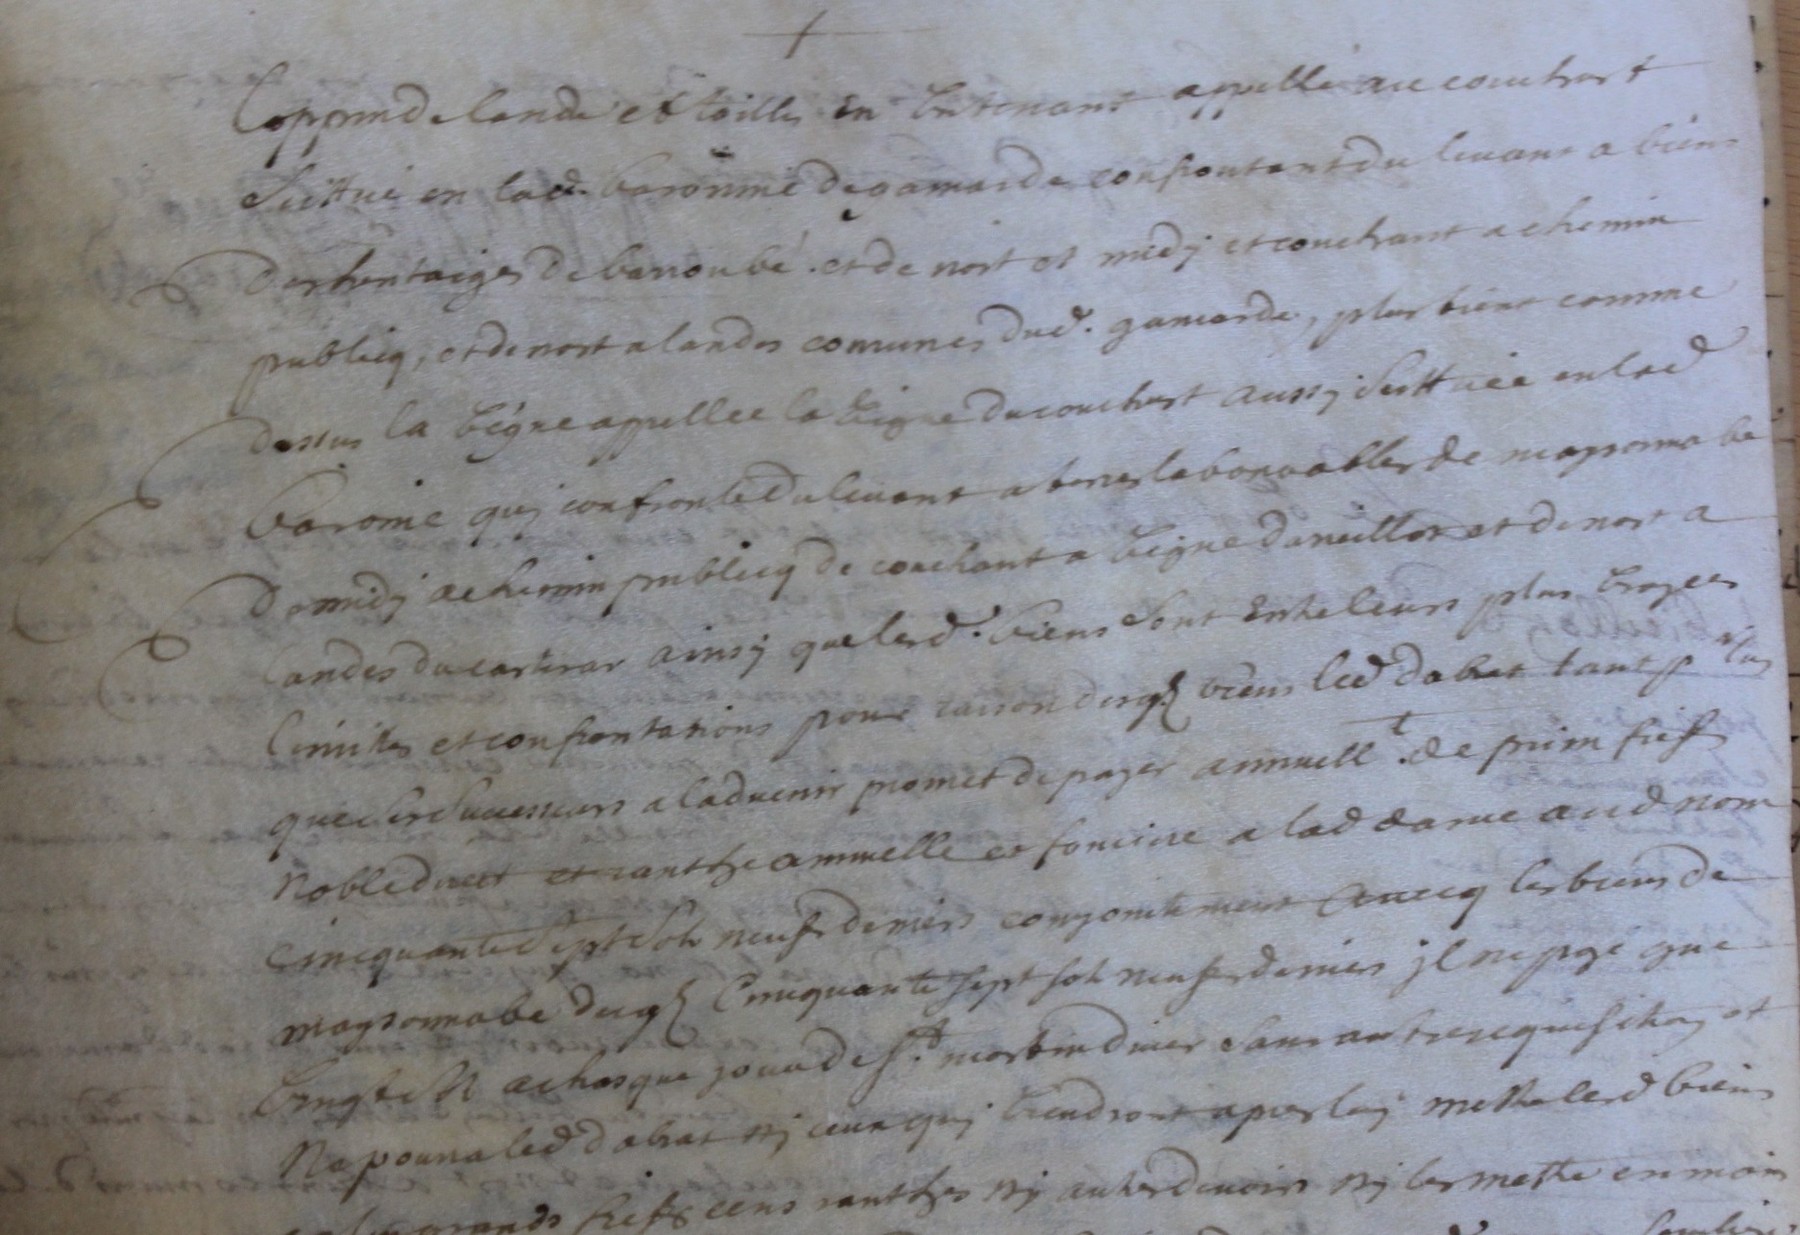 loppin de lande et toilles en un tenant appellé au couchurt
scittué en lad. baronnie de gamarde confrontant du levant a biens
des hentaiges de banoubé. et de nort et midj et couchant a chemin
publicq, et de nort a landes comunes dud. gamarde, plus tient comme
dessus la bigne apellee la bigne du couchurt aussj scittuée en lad
baronie quj confronte du levant a terres labourables de maysonnabe
de midj a chemin publicq de couchant a bigne et de nort a
landes du ainsj que lesd. biens sont entre leurs plus brayes
limittes et confrontations pour raison desqls biens led dabat tant p luy
que ses successeurs a ladvenir promet de payer annuellt. de prim fief
noble direct et ranthe annuelle et fonciere a lad dame aud nom
cincquante sept sols neufs deniers conjonctement avecq les biens de
maysonnabe desqls cincquante sept sols neufs deniers jl ne paje que
bingt sols a chasque jour de st. martin diver sans autre requisition et
ne pourra led dabat nj ceux quj biendront apres luj mettre lesd biens
grands fiefs cens ranthes nj autres devoirs nj les mettre en main